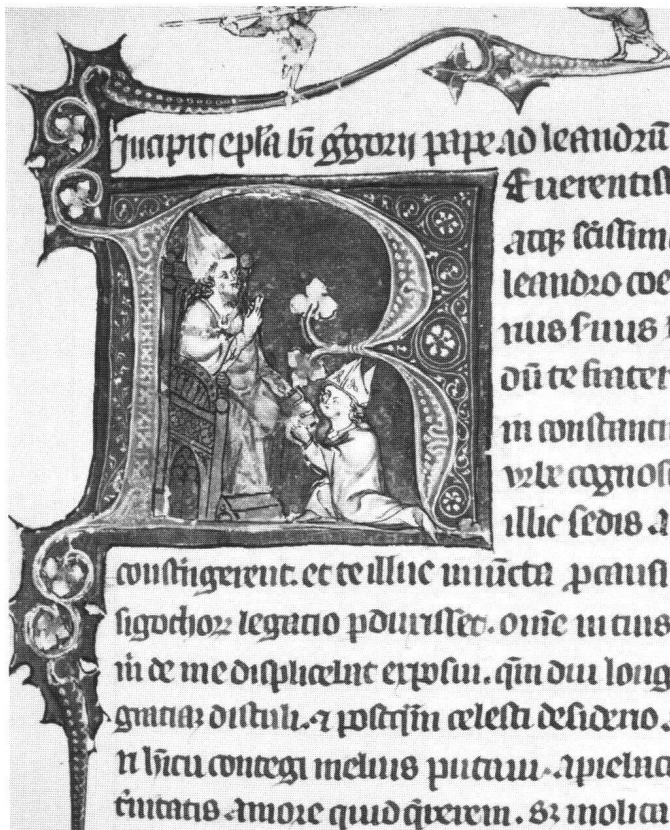 Incipit epła bi Ggorii pape ad leandrū
Reuerentiss
atq; sc̄issim
leandro coe
nus suus
dū te frater
in constanti
vrbe cognos
illic sedis a
constrīgerent. et te illuc iniūcta ꝑ causi
sigothoꝝ legatio ꝑduxisset. omē in tuis
m̄ de me displicebat exposui. qm̄ diu long
gratiaꝝ distuli. ⁊ postq̄m celesti desiderio
ri hītu contegi melius putaui. apiebat
t̄nitatis amore quid q̄rerem. sꝫ inolita